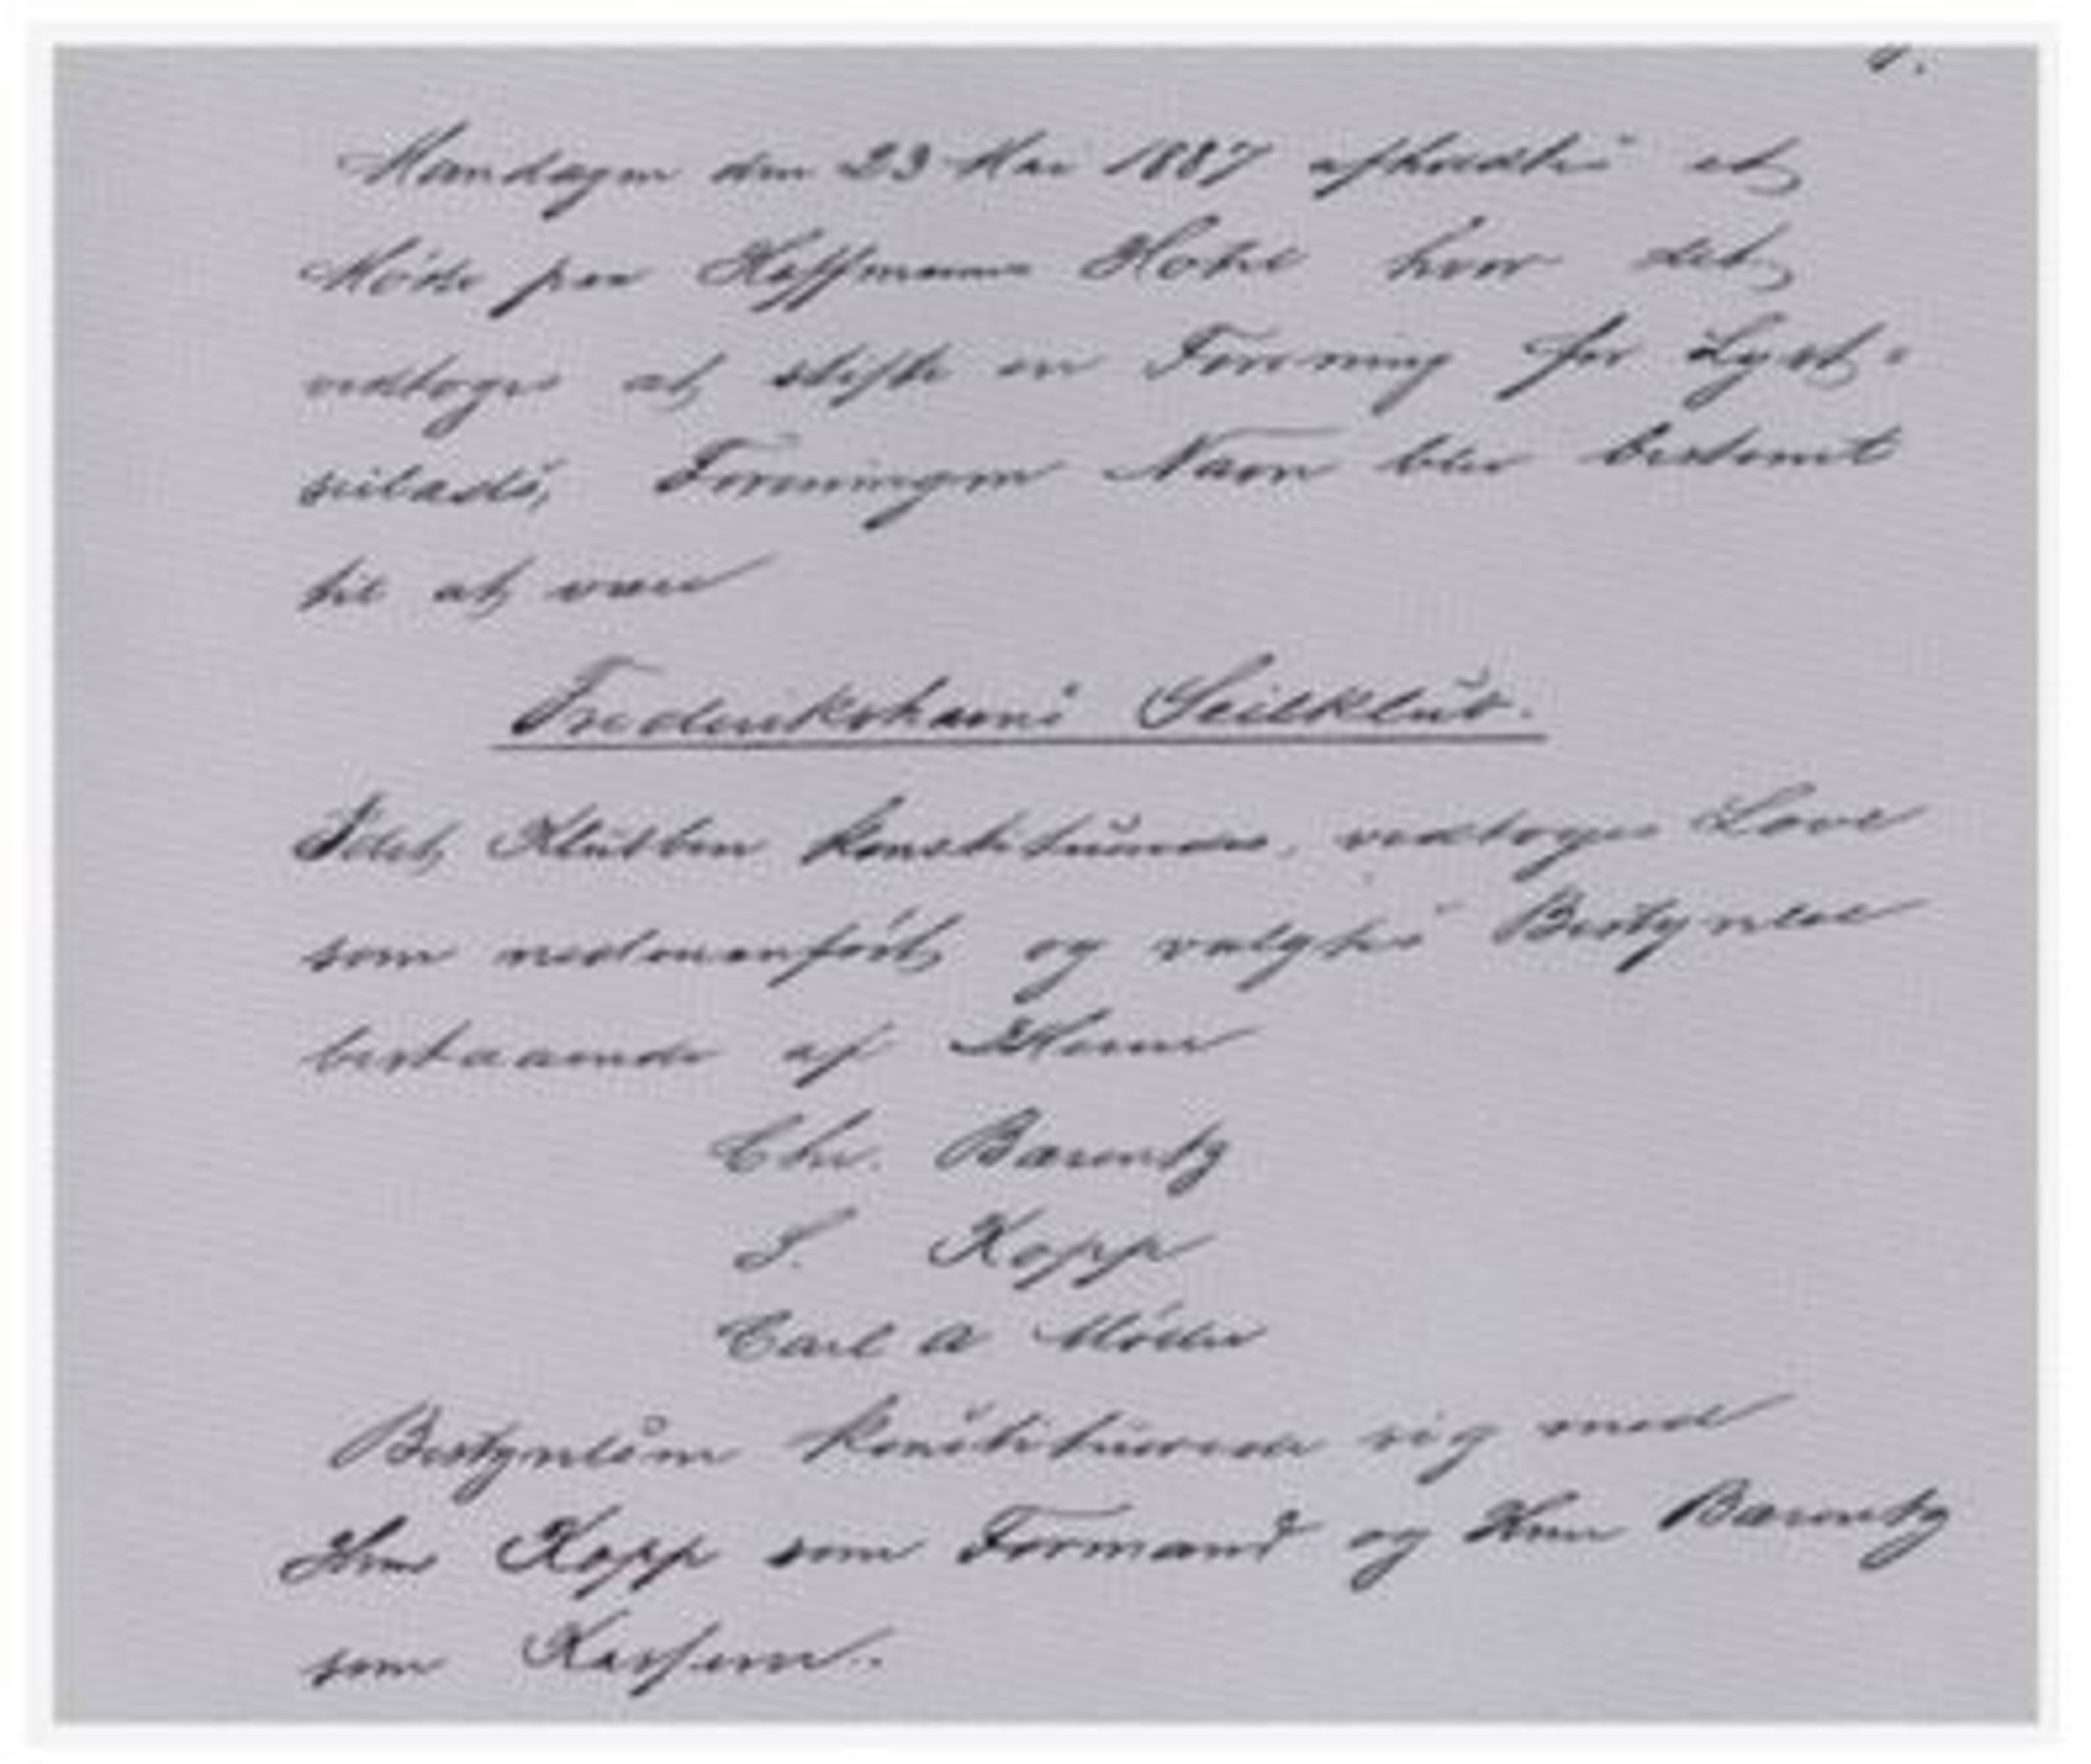 Mandagen den 23 Mai 1887 afholdtes et
Møde paa Hoffmanns Hotel hvor det
vedtoges at stifte en Forening for Lyst-
seilads, Foreningen Navn blev bestemt
til at være
Frederikshavns Seilklub.
Idet Klubben konstitueredes, vedtoges Love
som nedenanført og valgtes Bestyrelse
bestaaende af Herrer
Chr. Bærentz
S. Kopp
Carl A Møller
Bestyrelsen konstituerede sig med
Herr Kopp som Formand og Herr Bærentz
som Kasserer.